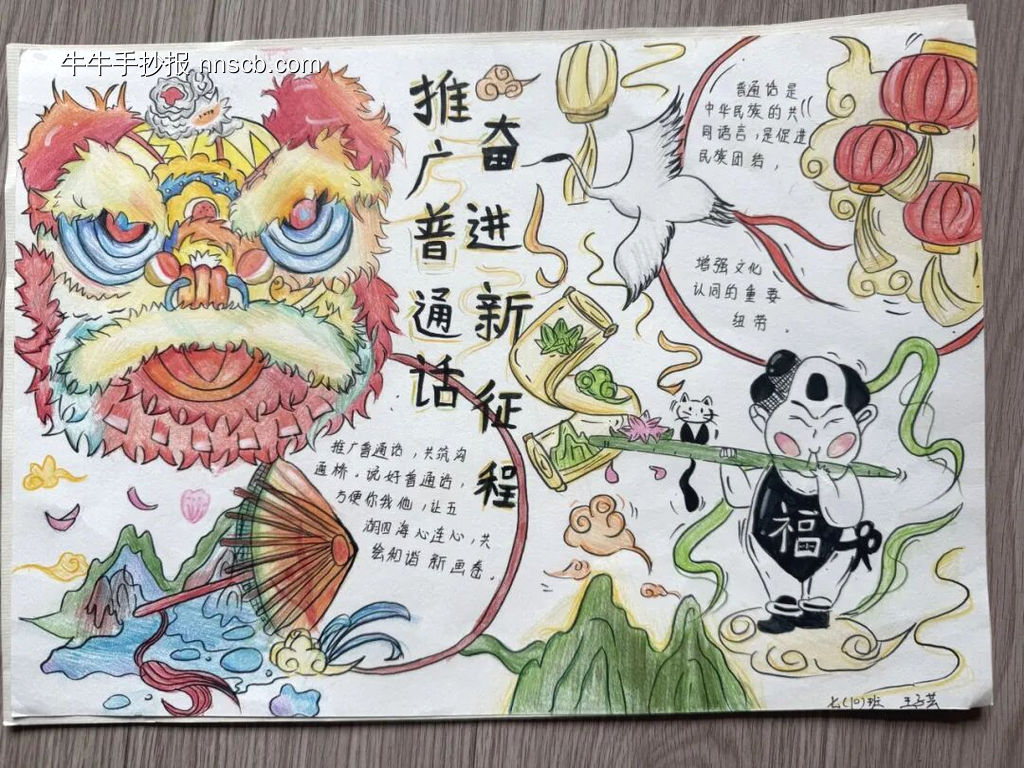 牛牛手抄报 nnscb.com
推广普通话
奋进新征程
普通话是
中华民族的共
同语言，是促进
民族团结，
增强文化
认同的重要
纽带．
推广普通话，共筑沟
通桥．说好普通话，
方便你我他，让五
湖四海心连心，共
绘和谐新画卷．
福
七(10)班 王子芸